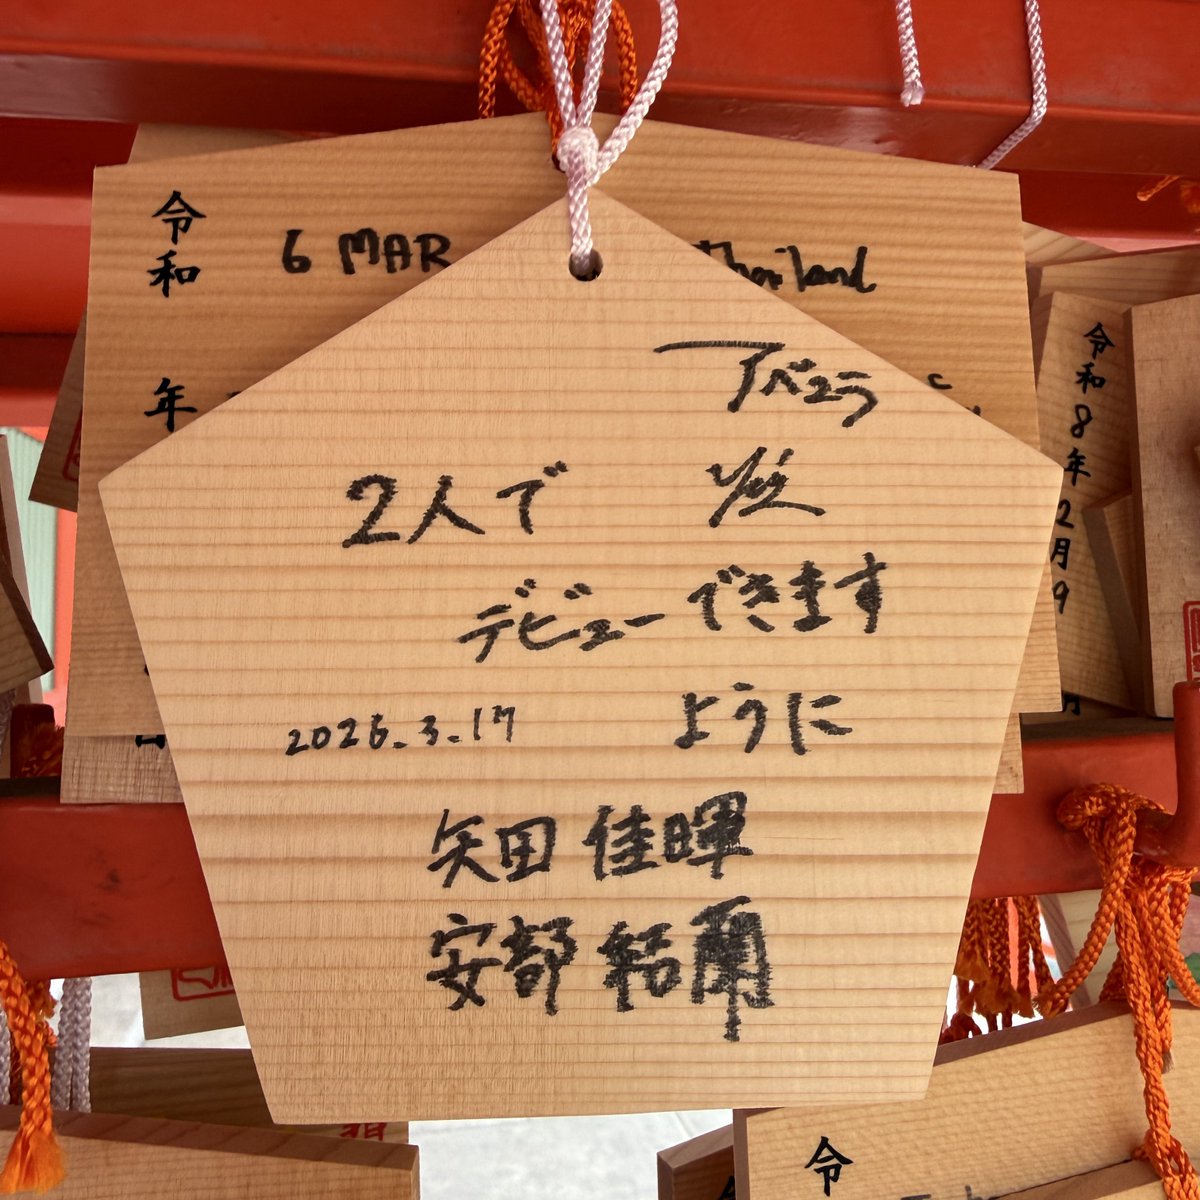 アベユラ
2人で
デビュー できます
ように
2026.3.17
矢田 佳暉
安部 結爾
令和
年
6 MAR
Thailand
令和8年2月9
令